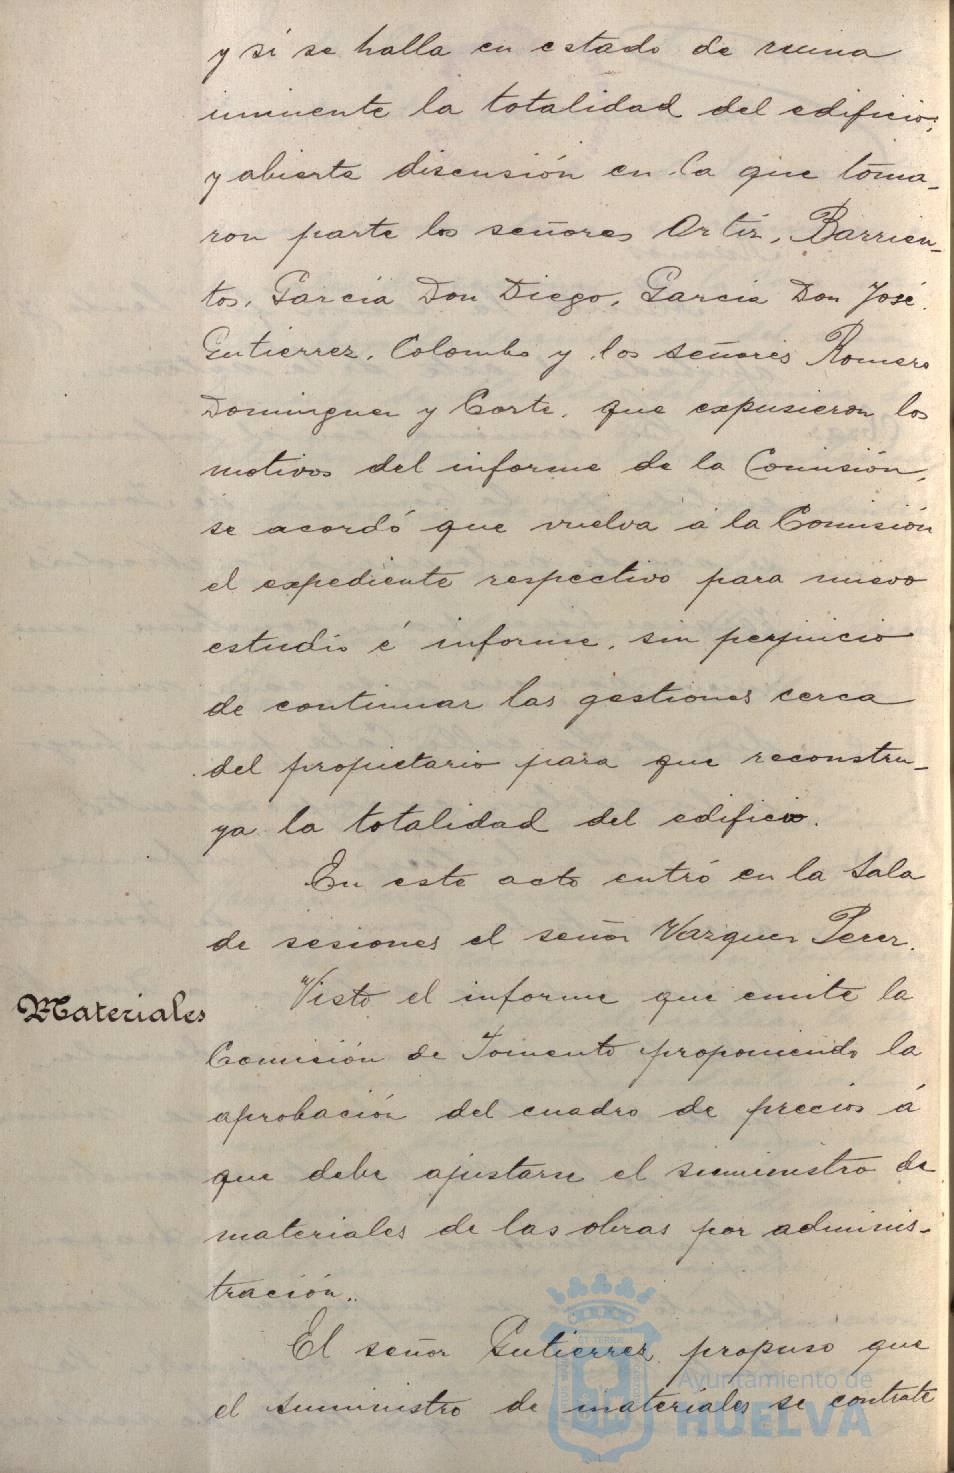 y si se halla en estado de ruina
inminente la totalidad del edificio;
y abierta discusión en la que toma-
ron parte los señores Ortiz, Barrien-
tos, Garcia Don Diego, Garcia Don José,
Gutierrez, Colombo y los señores Romero
Dominguez y Corte, que expusieron los
motivos del informe de la Comisión,
se acordó que vuelva á la Comisión
el expediente respectivo para nuevo
estudio é informe, sin perjuicio
de continuar las gestiones cerca
del propietario para que reconstru-
ya la totalidad del edificio.
En este acto entró en la Sala
de sesiones el señor Vazquez Perez.
Materiales
Visto el informe que emite la
Comisión de Fomento proponiendo la
aprobación del cuadro de precios á
que debe ajustarse el suministro de
materiales de las obras por adminis-
tración.
El señor Gutierrez propuso que
el suministro de materiales se contrate
Ayuntamiento de
HUELVA